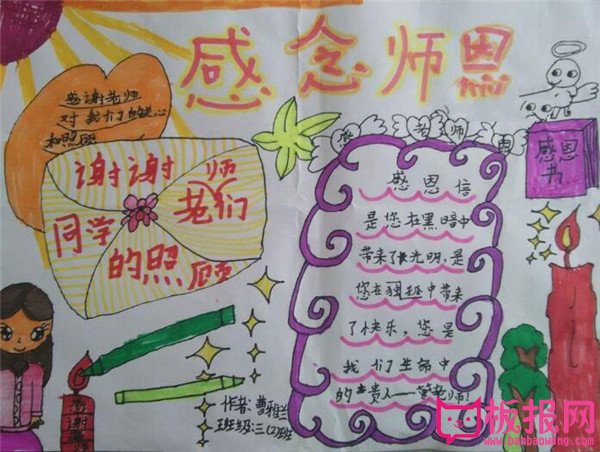 感念师恩
感谢老师
对我们的关心
和照顾
谢谢老师们
同学的照顾
感老师恩
感恩书
感恩信
是您在黑暗中
带来了光明,是
您在孤独中带来
了快乐,您是
我们生命中
的贵人——老师!
感谢
作者:曹雅兰
班级:三(2)班
板报网
www.banbaowang.com